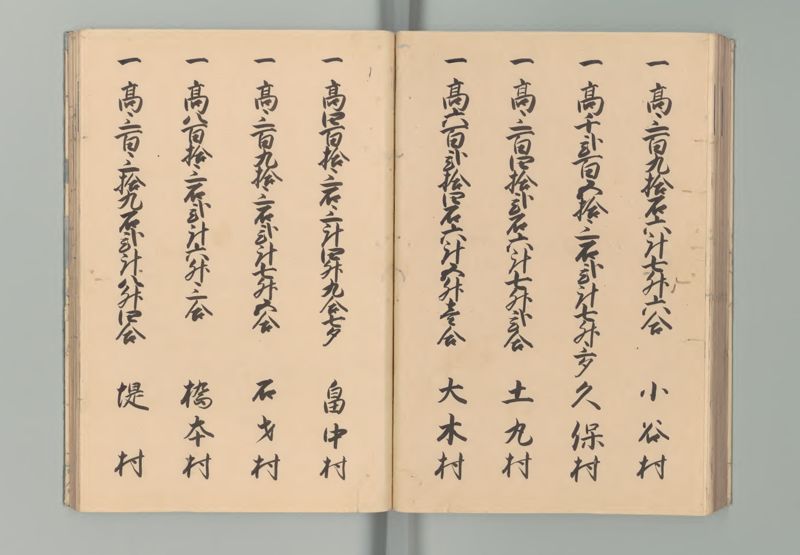 一高三百九拾石六斗七升六合 小谷村
一高千弐百五拾三石弐斗七升三夕 久保村
一高三百四拾弐石六斗七升弐合 土丸村
一高六百弐拾四石六斗五升壱合 大木村
一高四百拾三石三斗四升九合七夕 畠中村
一高三百九拾三石弐斗七升五合 石才村
一高八百拾三石弐斗六升三合 橋本村
一高三百三拾九石弐斗八升四合 堤村